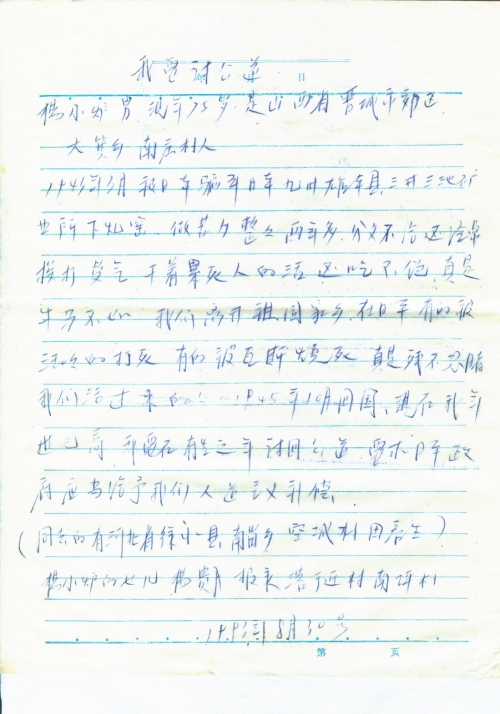 我要讨公道
日
杨小炉 男 现年75岁 是山西省晋城市郊区
大箕乡 南庄村人
1943年3月被日本骗到日本九州 本县三井三池矿
业所下煤窑 做苦力整整两年多 分文不给还经常
挨打受气 干着累死人的活 还吃不饱 真是
牛马不如 我们离开祖国家乡 在日本 有的被
活活的打死 有的被瓦斯烧死 真是残不忍睹
我们活过来的 1945年11月回国 现在我年
也已高 我要在有生之年讨回公道 要求日本政
府应当给予我们人道主义补偿
(同去的有河北省徐水县 乡 城村田春生)
杨小炉的女儿 杨贵 村南 村
1993年8月30号
第 页